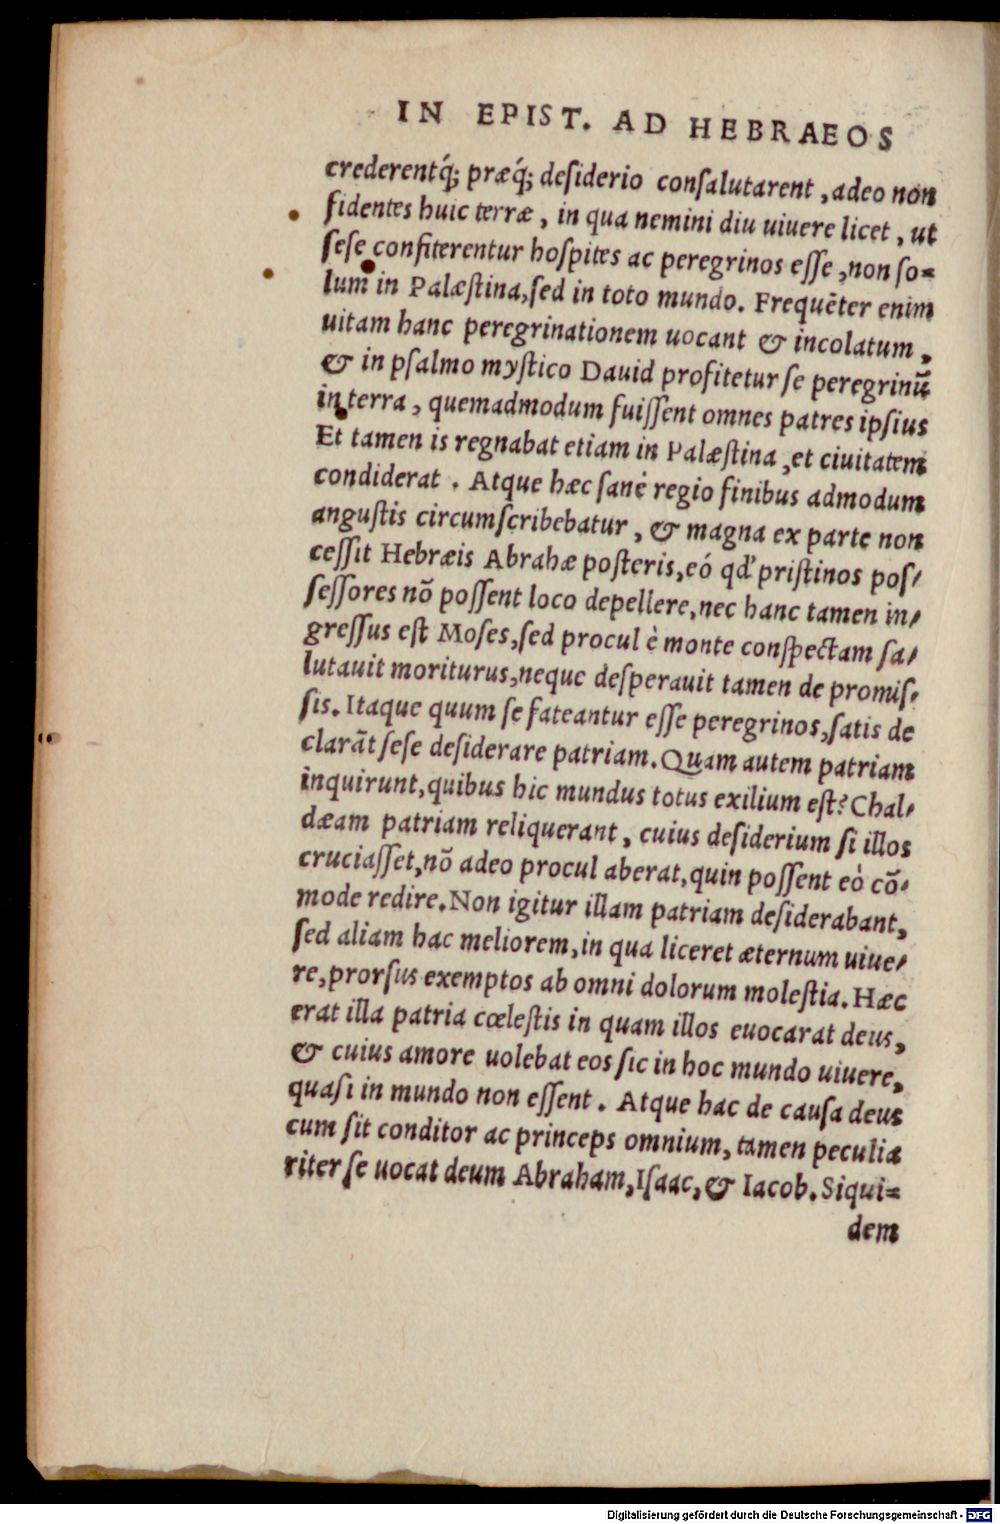 IN EPIST. AD HEBRAEOS
crederentq́; præq́; desiderio consalutarent, adeo non
fidentes huic terræ, in qua nemini diu uiuere licet, ut
sese confiterentur hospites ac peregrinos esse, non so=
lum in Palæstina, sed in toto mundo. Frequēter enim
uitam hanc peregrinationem uocant & incolatum,
& in psalmo mystico Dauid profitetur se peregrinū
in terra, quemadmodum fuissent omnes patres ipsius
Et tamen is regnabat etiam in Palæstina, et ciuitatem
condiderat. Atque hæc sanè regio finibus admodum
angustis circumscribebatur, & magna ex parte non
cessit Hebræis Abrahæ posteris, eó qđ pristinos pos-
sessores nō possent loco depellere, nec hanc tamen in-
gressus est Moses, sed procul è monte conspectam sa-
lutauit moriturus, neque desperauit tamen de promis-
sis. Itaque quum se fateantur esse peregrinos, satis de
clarāt sese desiderare patriam. Quam autem patriam
inquirunt, quibus hic mundus totus exilium est? Chal-
dæam patriam reliquerant, cuius desiderium si illos
cruciasset, nō adeo procul aberat, quin possent eò cō-
mode redire. Non igitur illam patriam desiderabant,
sed aliam hac meliorem, in qua liceret æternum uiue-
re, prorsus exemptos ab omni dolorum molestia. Hæc
erat illa patria cœlestis in quam illos euocarat deus,
& cuius amore uolebat eos sic in hoc mundo uiuere,
quasi in mundo non essent. Atque hac de causa deus
cum sit conditor ac princeps omnium, tamen peculia
riter se uocat deum Abraham, Isaac, & Iacob. Siqui=
dem
Digitalisierung gefördert durch die Deutsche Forschungsgemeinschaft - DFG